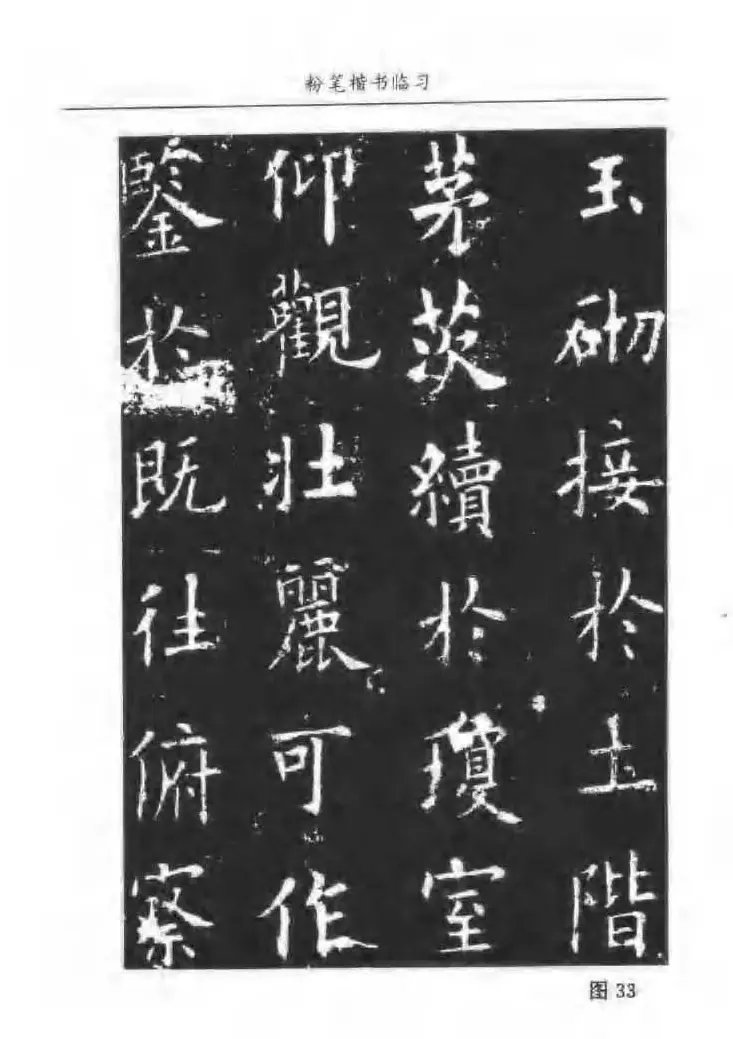 粉笔楷书临习
玉砌接於土階
茅茨續於瓊室
仰觀壯麗可作
鑒於既往俯察
图 33